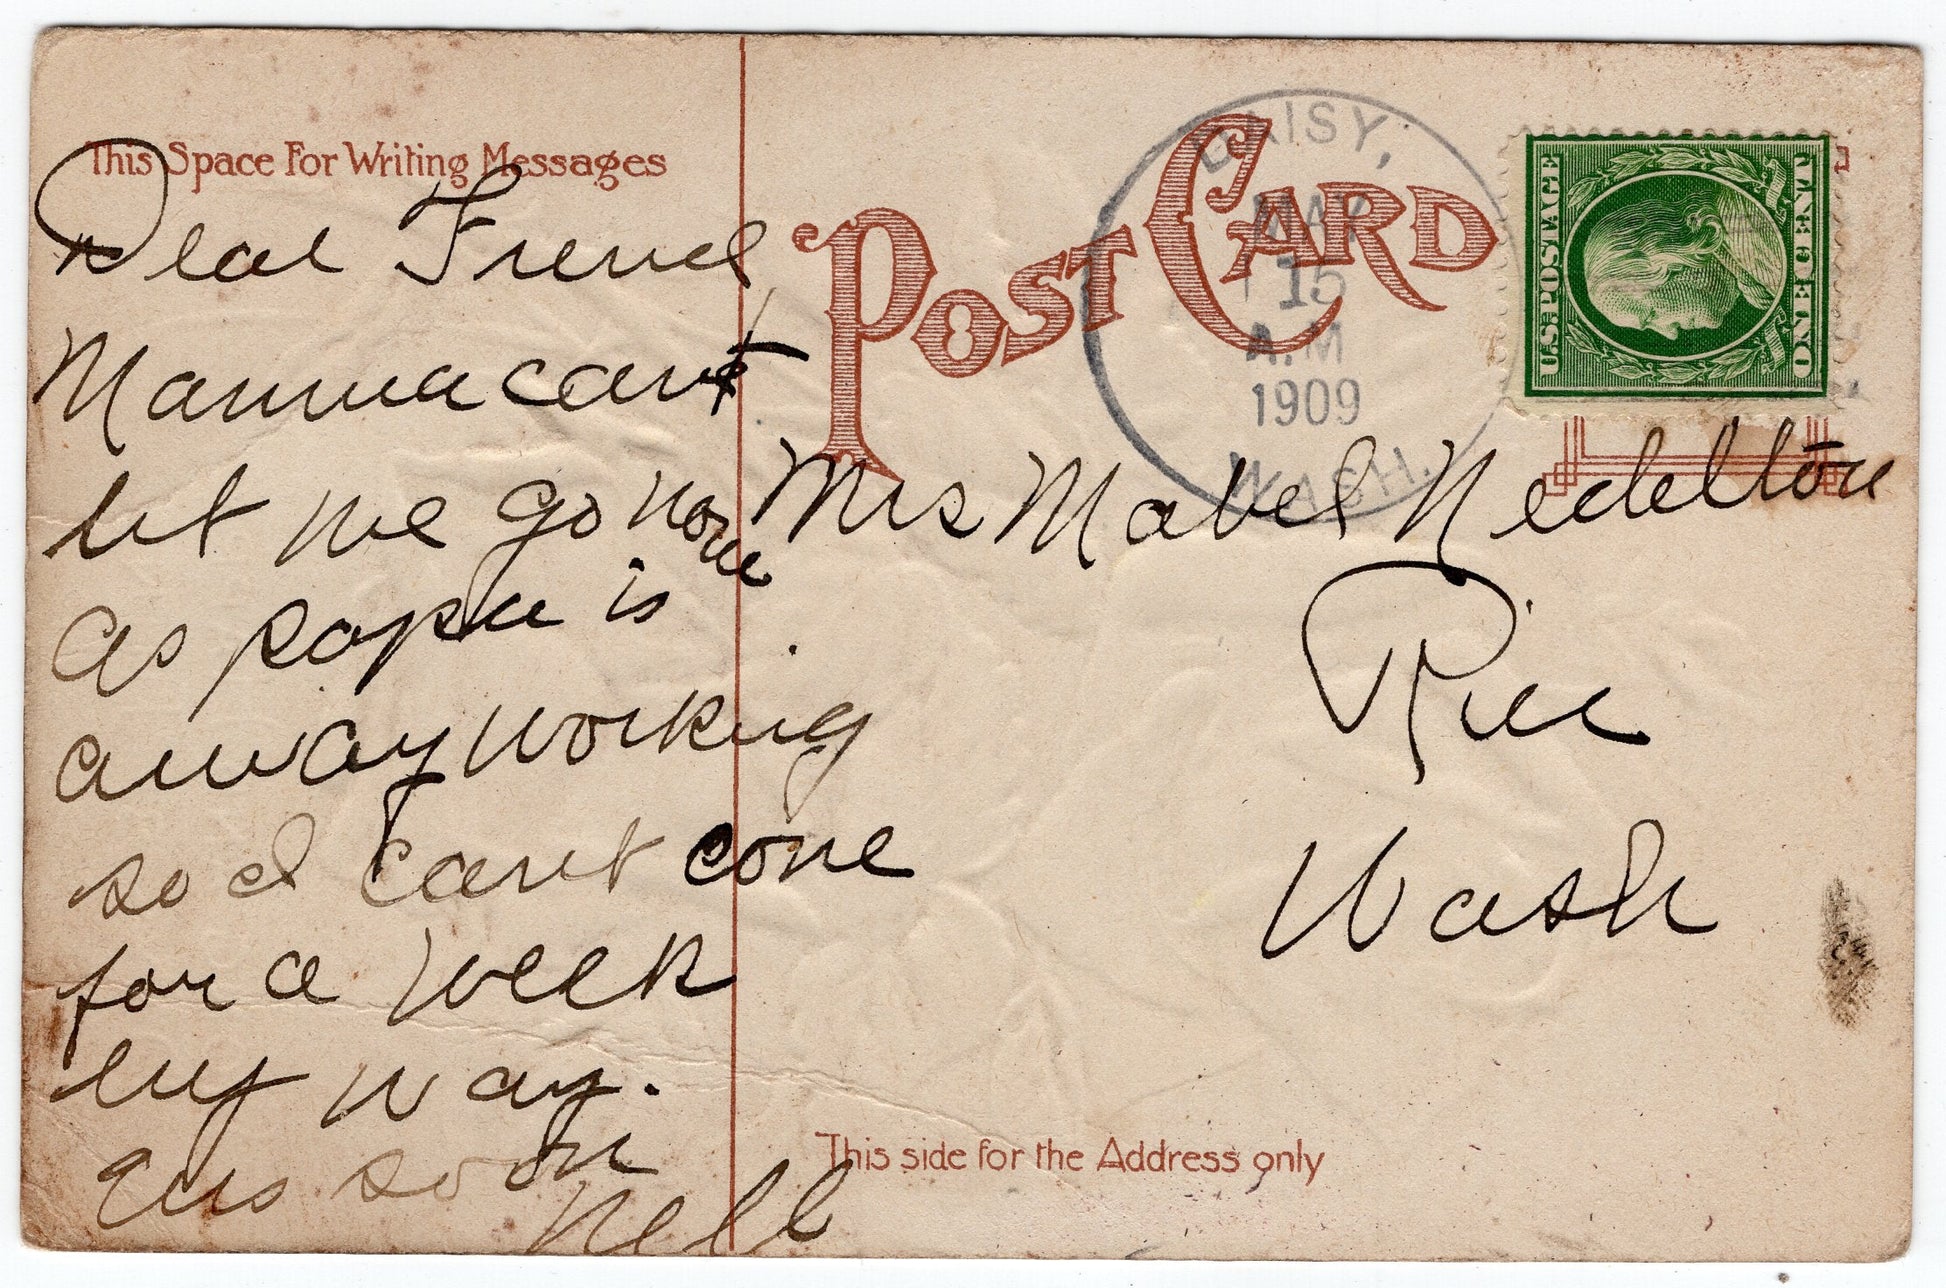 This Space For Writing Messages
Dear Frend
Mamma cant
let me go now
as papa is
away working
so I cant come
for a week
eny way.
Ans soon
Nell
POST CARD
DAISY,
MAY
15
A.M
1909
WASH.
U.S. POSTAGE
ONE CENT
Mrs Mabel Nedelton
Rice
Wash
This side for the Address only